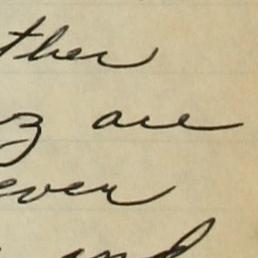 ther
z are
ever
and